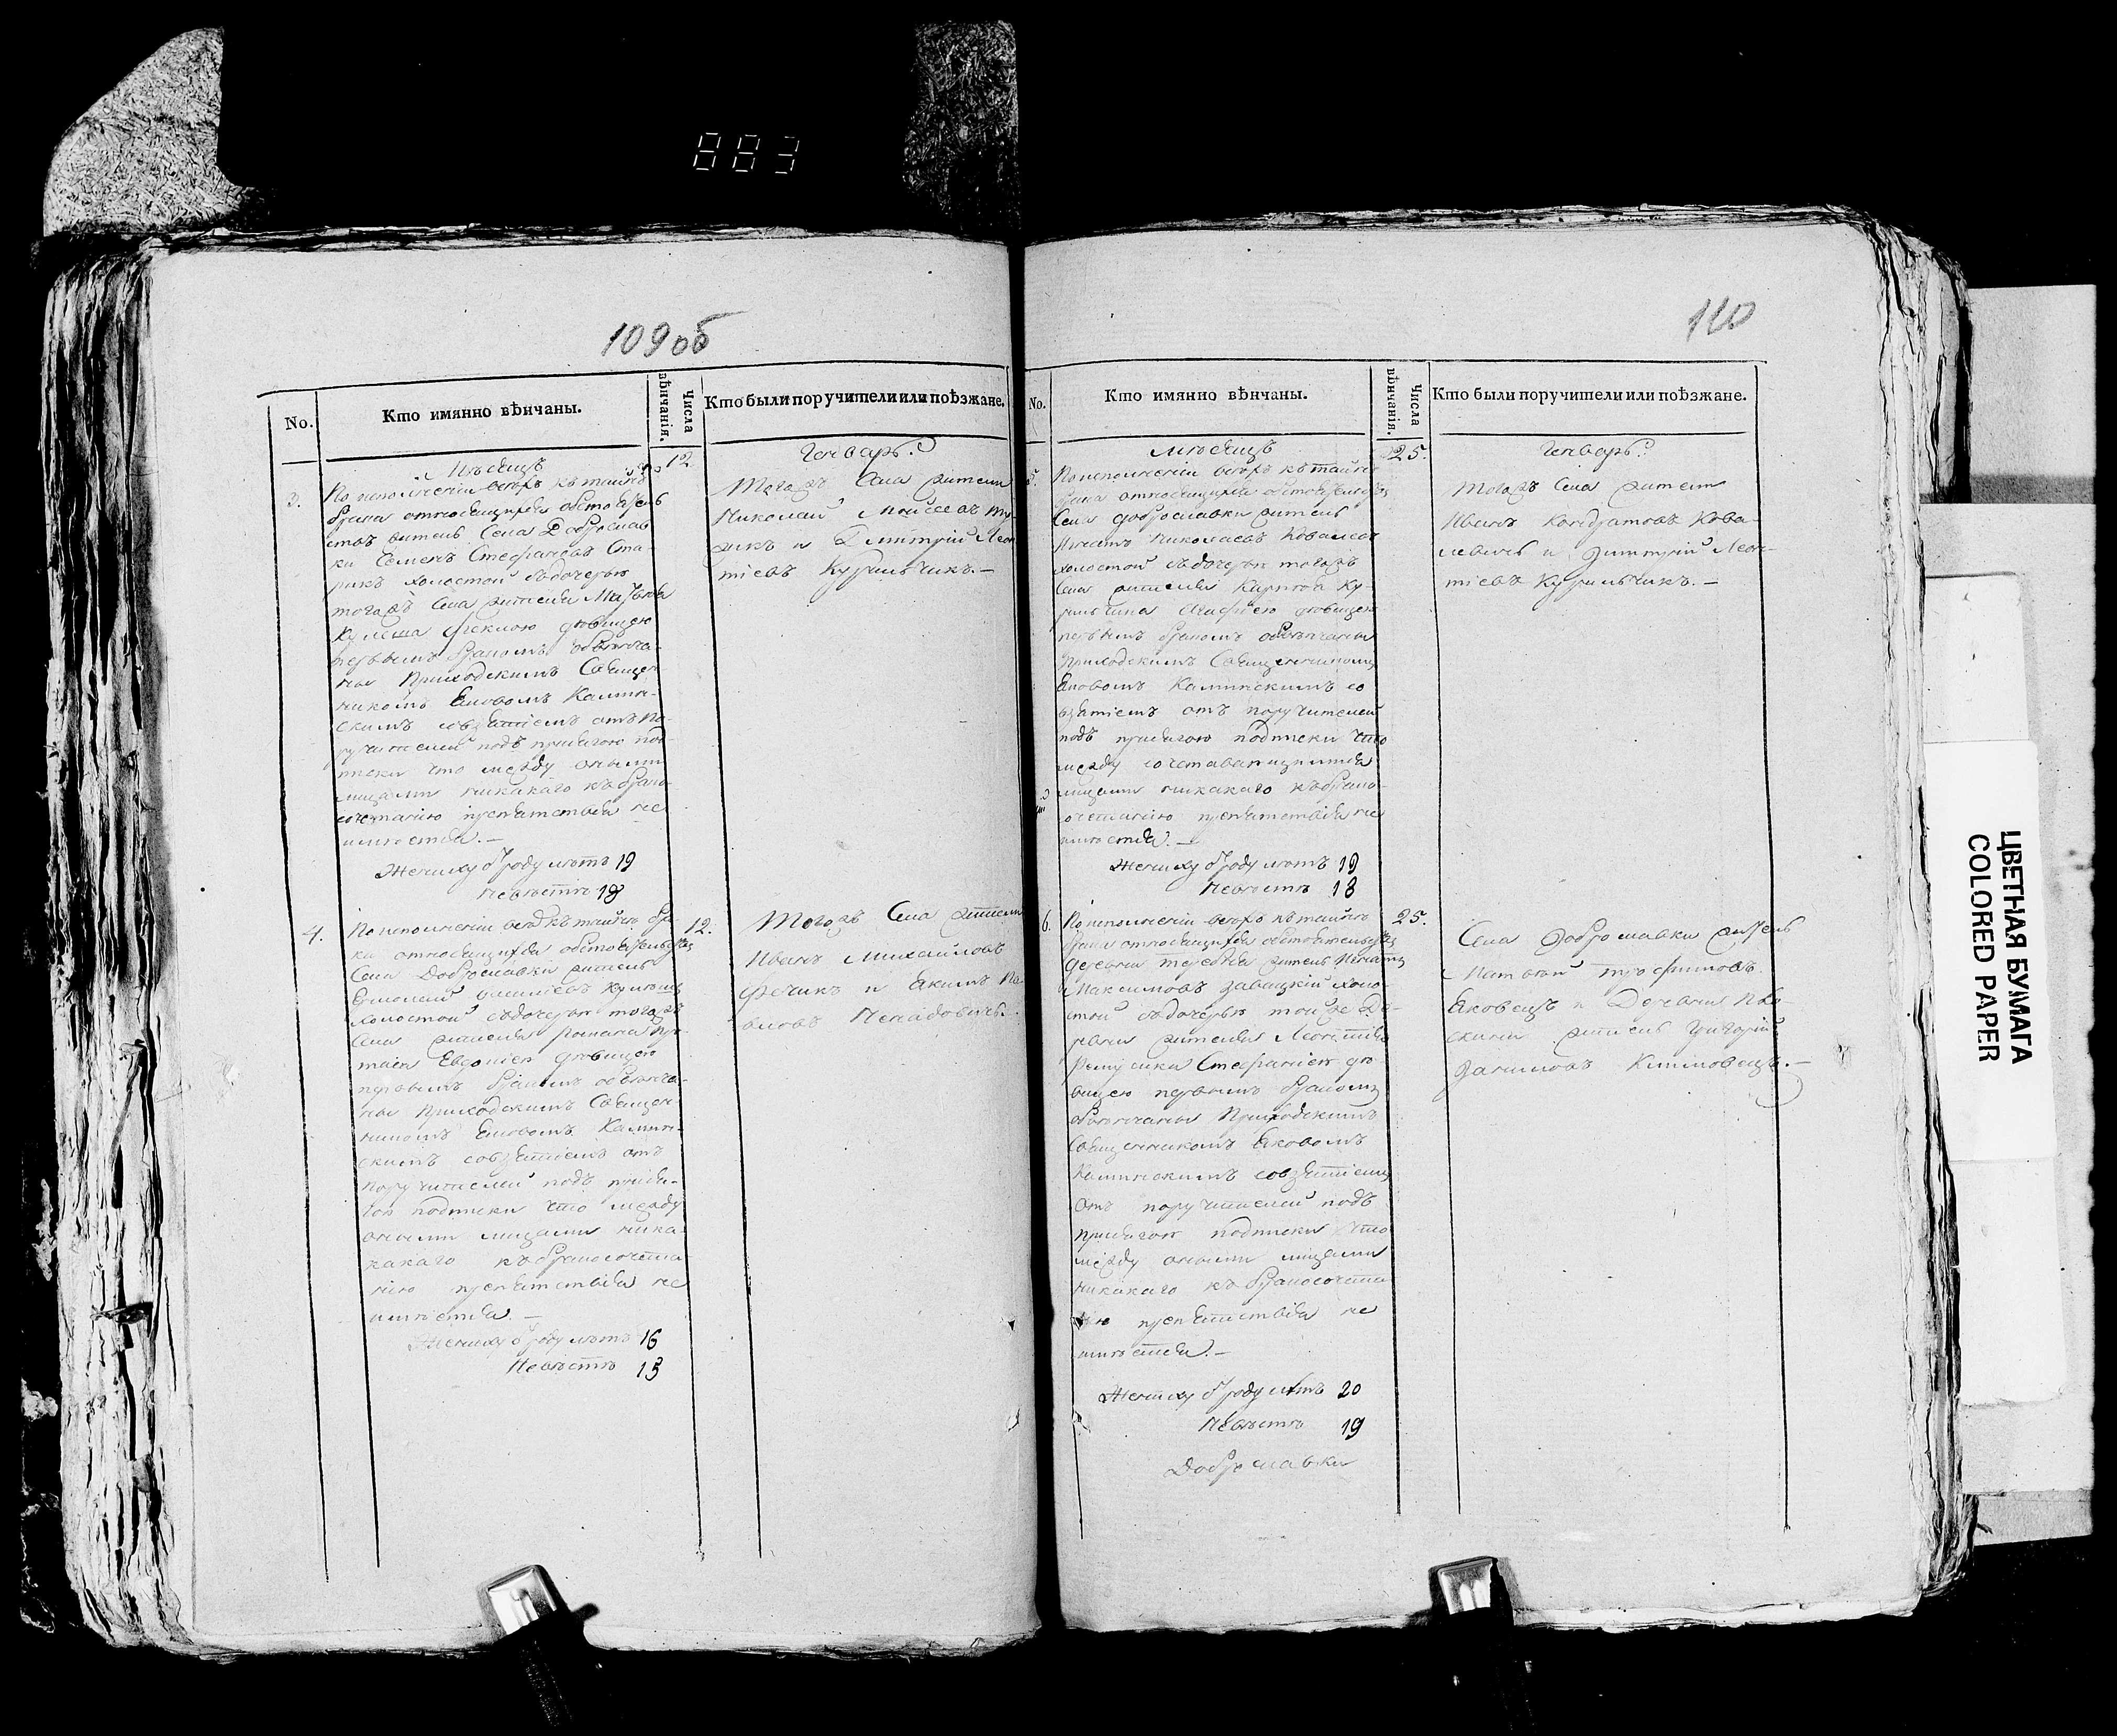 883
109об
No.
Кто имянно вѣнчаны.
Числа вѣнчанія.
Кто были поручители или поѣзжане.
Мѣсяцъ
12
Генварь.
3.
По исполненіи всѣхъ къ тайнѣ
брака относящихся обстоятель
ствъ житель Села Доброслав
ки Семенъ Стефановъ
холостой съ дочерью
тогожъ Села жителя Матвѣя
Кулеша Феклою дѣвицею
первымъ бракомъ обвѣнча-
ны Приходскимъ Священ
никомъ Яковомъ Калин-
скимъ со взятіемъ отъ по-
ручителей подъ присягою под-
писки что между оными
лицами никакаго къ брако-
сочетанію препятствія не
имѣется. —
Жениху отъ роду лѣтъ 19
Невѣстѣ 18
Тогожъ Села жители
Николай Моисеевъ
и Димитрій Леон
тіевъ Курильчикъ. —
4.
По исполненіи всѣхъ къ тайнѣ бра-
ка относящихся обстоятельствъ
Села Доброславки житель
Ермолай Кулешъ
холостой съ дочерью тогожъ
Села жителя Романа
дѣвицею
первымъ бракомъ обвѣнча-
ны Приходскимъ Священ-
никомъ Яковомъ Калин-
скимъ со взятіемъ отъ
поручителей подъ прися-
гою подписки что между
оными лицами ника-
какаго къ бракосочета
нію препятствія не
имѣется. —
Жениху отъ роду лѣтъ 16
Невѣстѣ
12.
Тогожъ Села жители
Иванъ Михайловъ
и Якимъ Па
вловъ Ненадовичъ.
110
No.
Кто имянно вѣнчаны.
Числа вѣнчанія.
Кто были поручители или поѣзжане.
Мѣсяцъ
25.
Генварь.
5.
По исполненіи всѣхъ къ тайнѣ
брака относящихся обстоятельствъ
Села Доброславки житель
Игнатъ Николаевъ Ковалевъ
холостой съ дочерью тогожъ
Села жителя Карпа Ку-
Агафіею дѣвицею
первымъ бракомъ обвѣнчаны
Приходскимъ Священникомъ
Яковомъ Калинскимъ со
взятіемъ отъ поручителей
подъ присягою подписки что
между сочетавающимися
лицами никакаго къ брако-
сочетанію препятствія не
имѣется. —
Жениху отъ роду лѣтъ 19
Невѣстѣ 18
Тогожъ Села жители
Иванъ Кондратовъ Кова-
левичъ и Димитрій Леон-
тіевъ Курильчикъ. —
6.
По исполненіи всѣхъ къ тайнѣ
брака относящихся обстоятельствъ
Деревни житель Игнатъ
Максимовъ Завацкій холо-
стой съ дочерью той же Де-
ревни жителя Леонтія
Стефаніею дѣ-
вицею первымъ бракомъ
обвѣнчаны Приходскимъ
Священникомъ Яковомъ
Калинскимъ со взятіемъ
отъ поручителей подъ
присягою подписки что
между оными лицами
никакаго къ бракосочета
нію препятствія не
имѣется. —
Жениху отъ роду лѣтъ 20
Невѣстѣ 19
Доброславки
25.
Села Доброславки житель
Матвѣй Трофимовъ
Яковецъ и Деревни
житель Григорій
Даниловъ Климовецъ. —
ЦВЕТНАЯ БУМАГА
COLORED PAPER